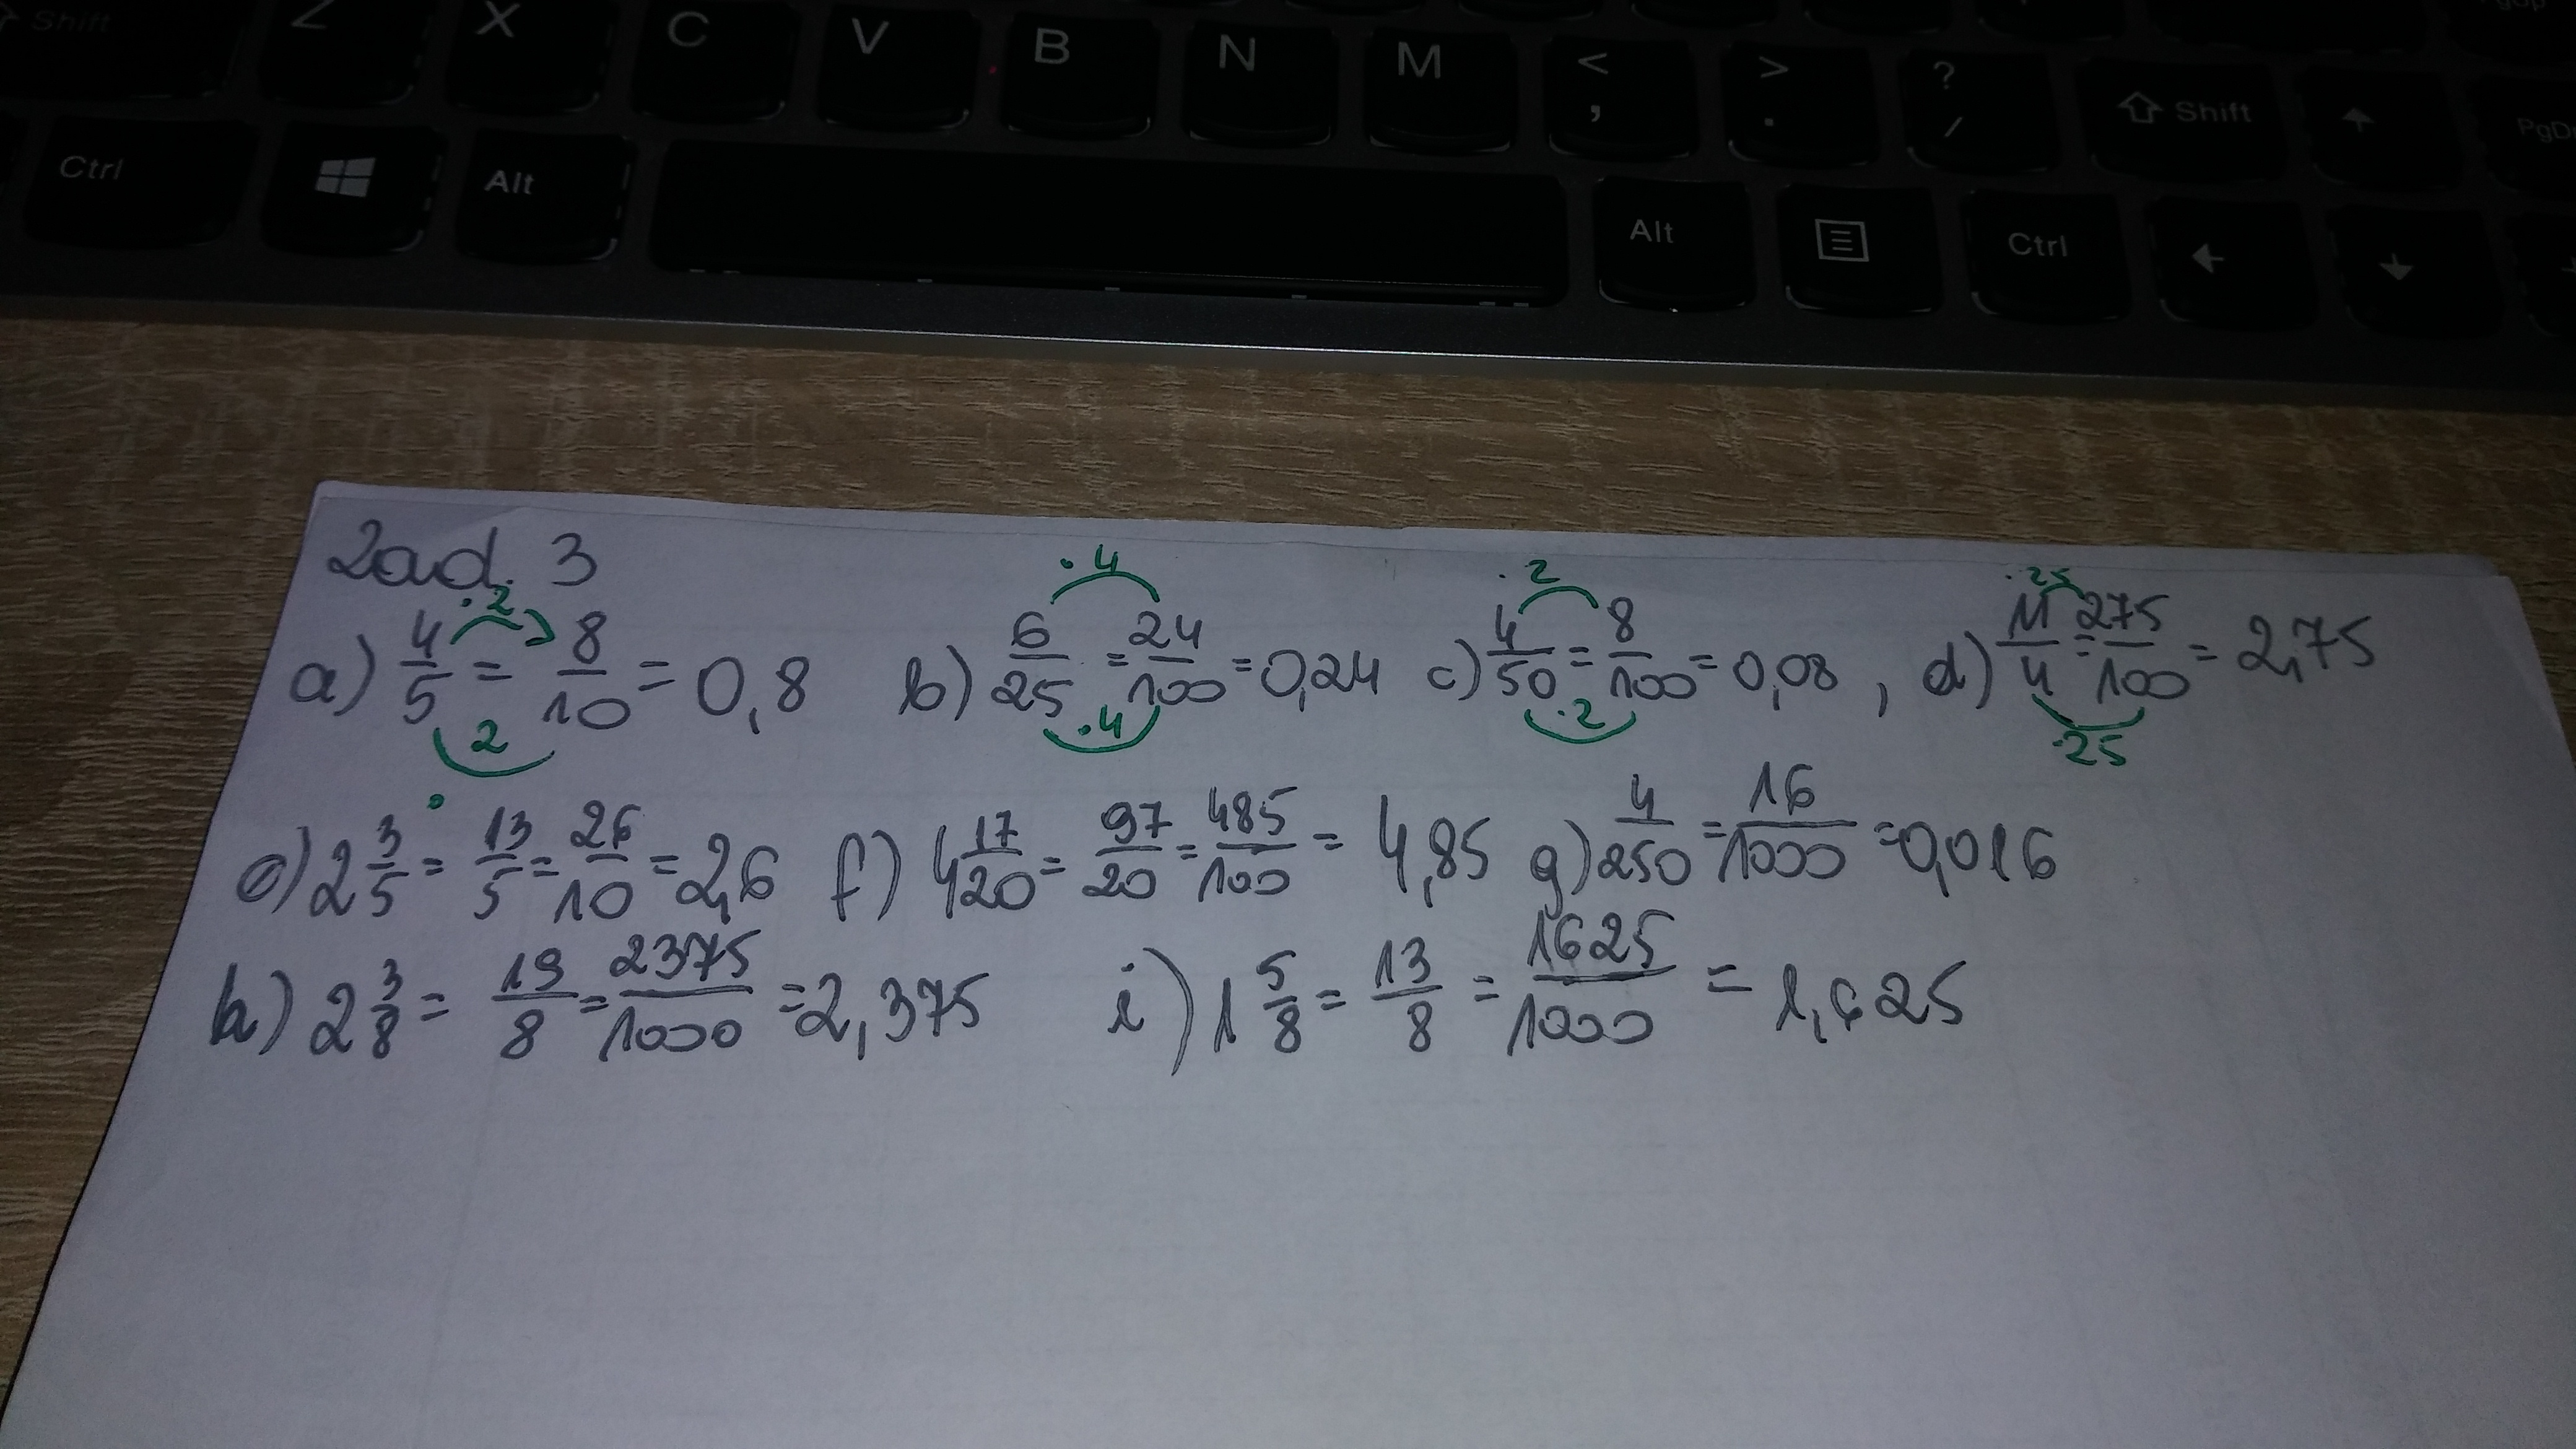 Shift Z X C V B N M < , > . ? / Shift PgDn
Ctrl Alt Alt Ctrl
Zad. 3
·2 ·4 ·2 ·25
a) 4/5 = 8/10 = 0,8 b) 6/25 = 24/100 = 0,24 c) 4/50 = 8/100 = 0,08 , d) 11/4 = 275/100 = 2,75
·2 ·4 ·2 ·25
e) 2 3/5 = 13/5 = 26/10 = 2,6 f) 4 17/20 = 97/20 = 485/100 = 4,85 g) 4/250 = 16/1000 = 0,016
h) 2 3/8 = 19/8 = 2375/1000 = 2,375 i) 1 5/8 = 13/8 = 1625/1000 = 1,625